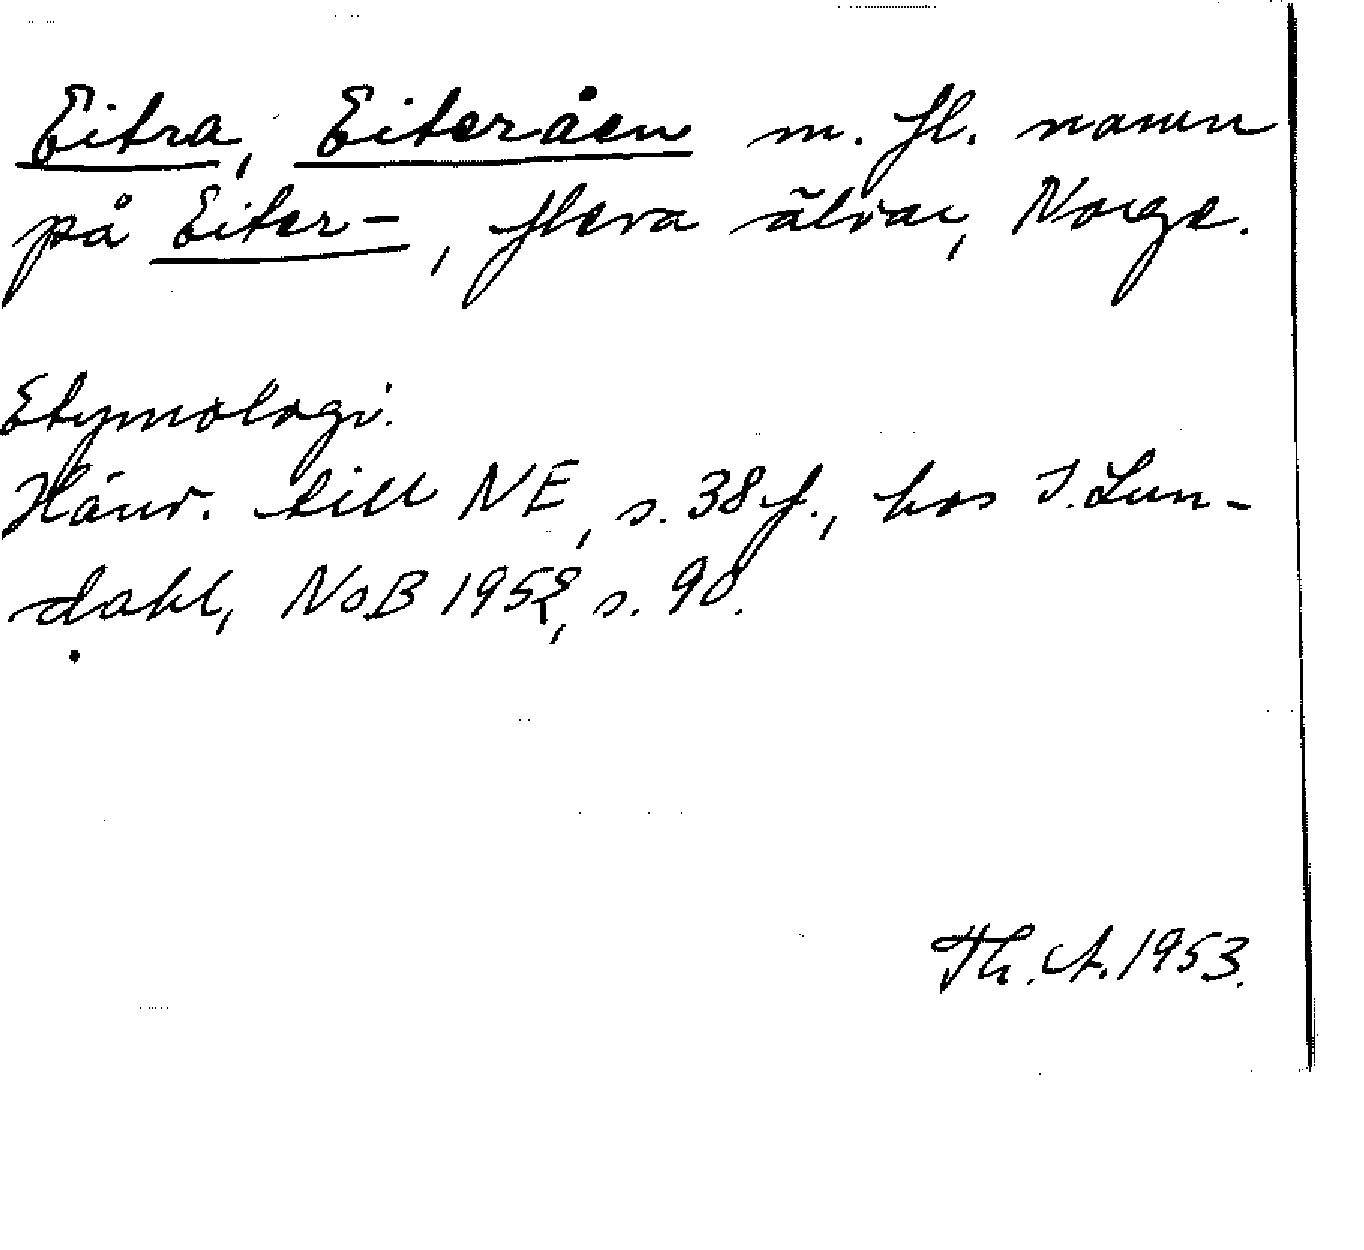 Eitra, Eiteråen m. fl. namn
på Eiter-, flera älvar, Norge.
Etymologi.
Hänv. till NE, s. 38 f., hos I. Lun-
dahl, NoB 1952, s. 90.
Th. A. 1953.